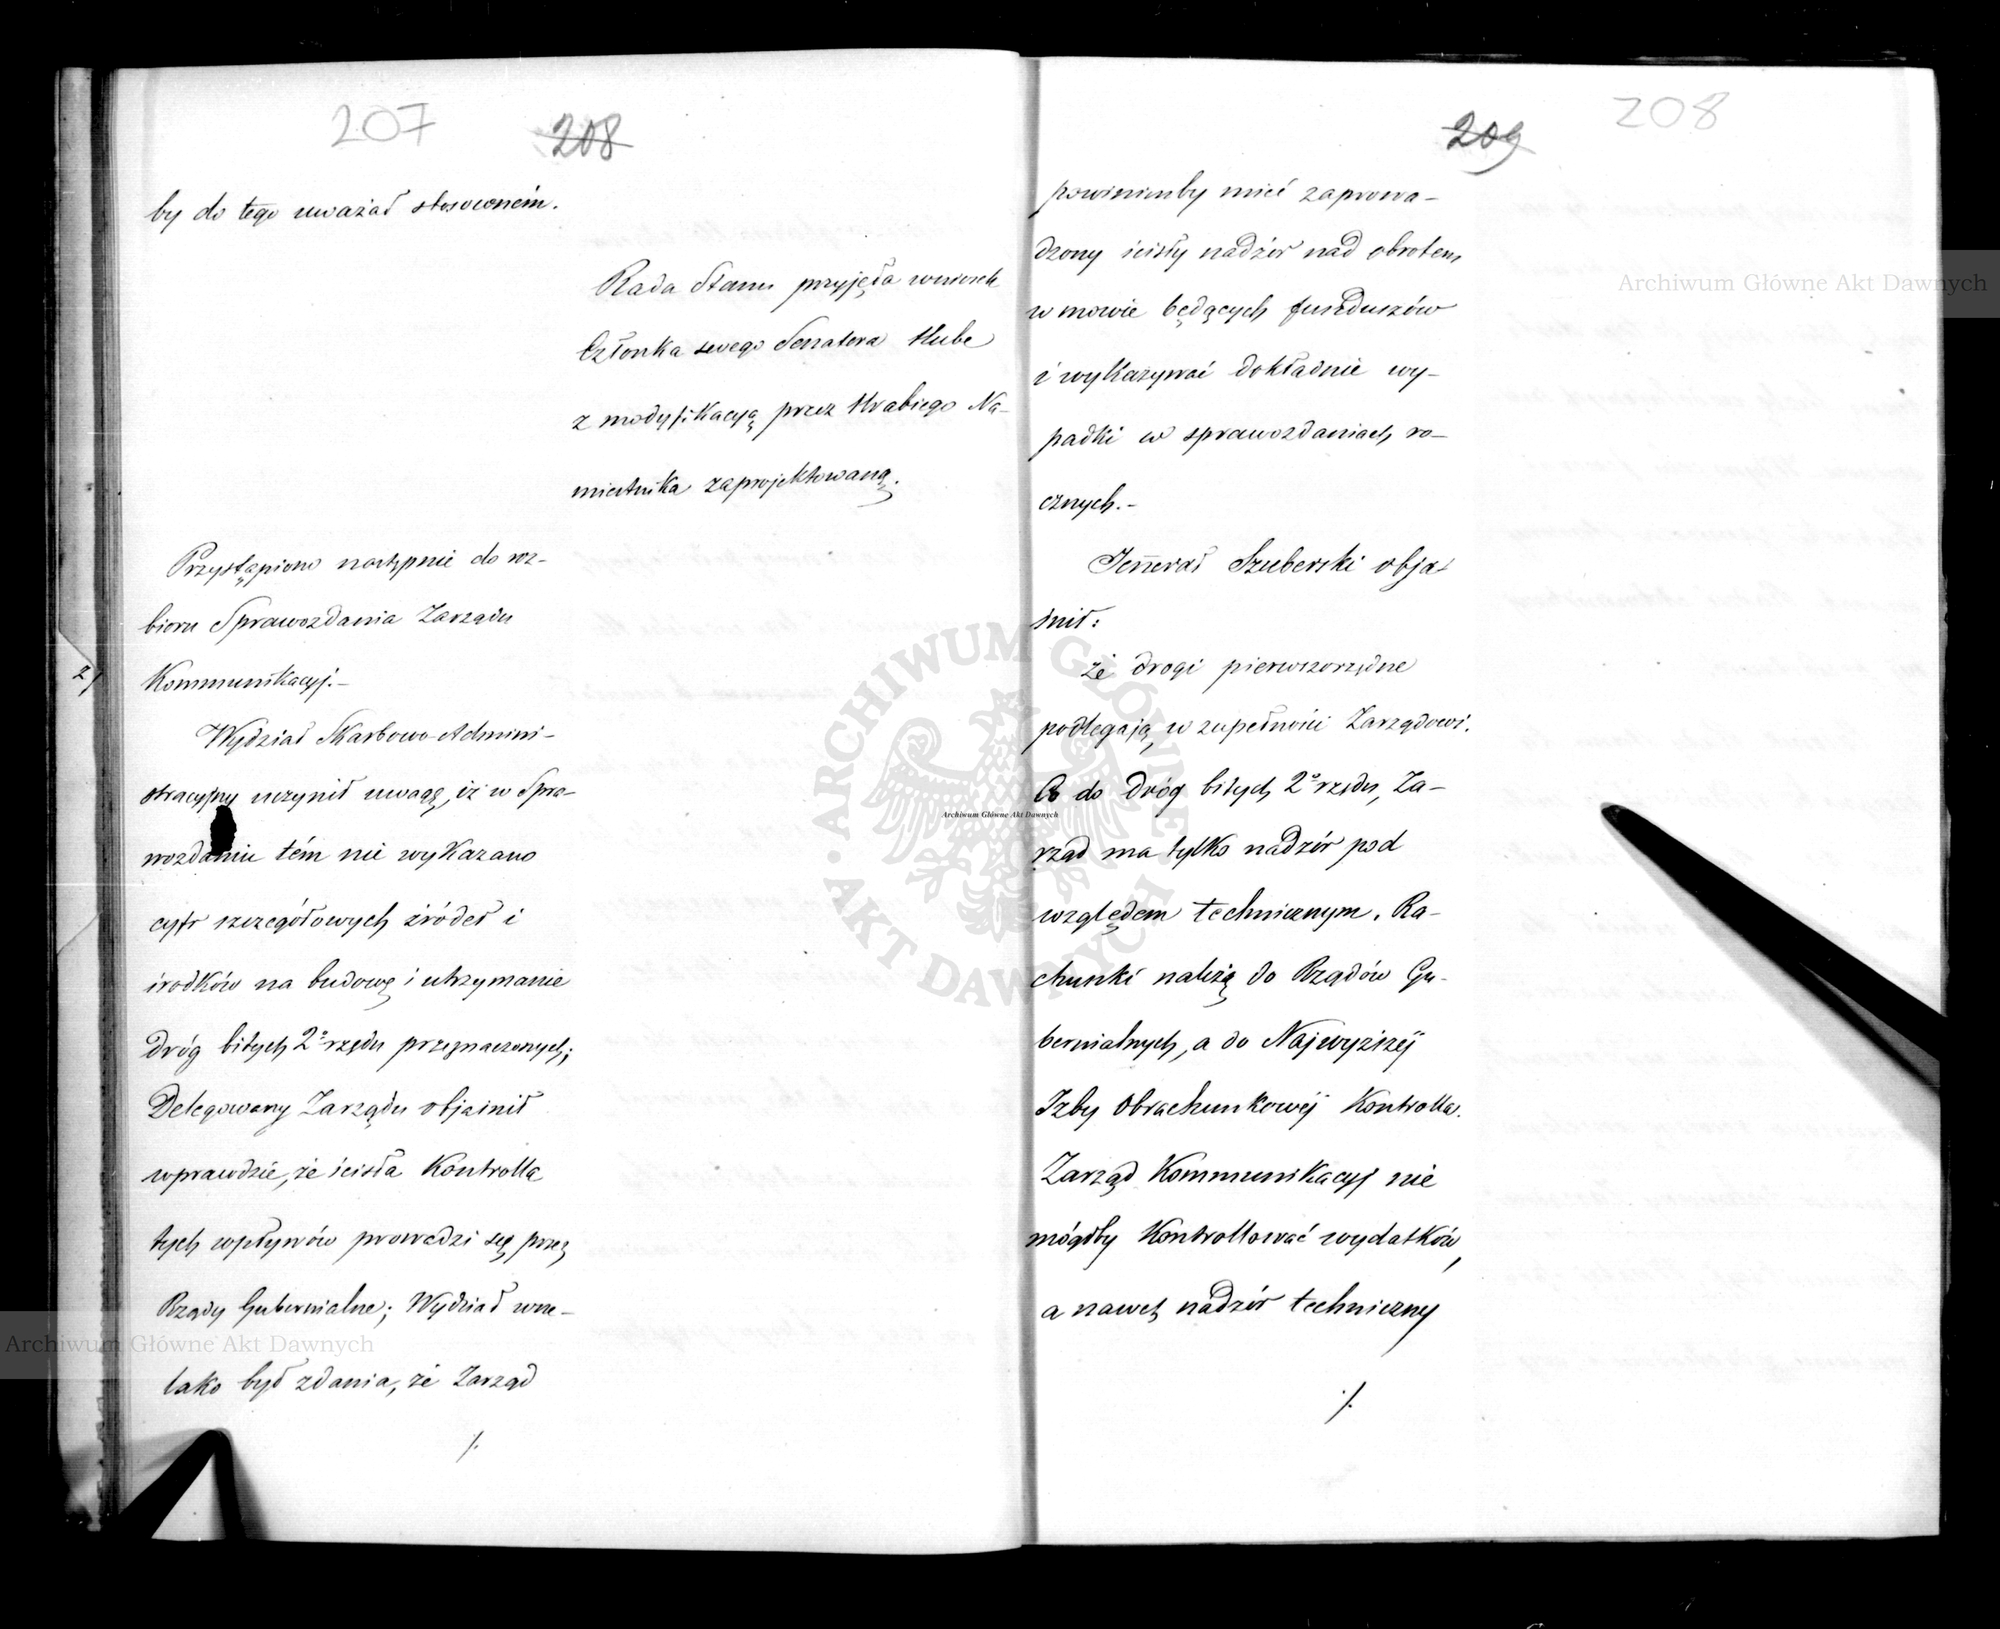 207 208
by do tego uważał stosowném.
Rada Stanu przyjęła wniosek
Członka swego Senatora Hube
z modyfikacyą przez Hrabiego Na-
miestnika zaprojektowaną.
Przystąpiono następnie do roz-
bioru Sprawozdania Zarządu
Kommunikacyj.-
Wydział Skarbowo-Admini-
stracyjny uczynił uwagę, iż w Spra-
wozdaniu tém nie wykazano
cyfr szczegółowych źródeł i
środków na budowę i utrzymanie
dróg bitych 2º rzędu przeznaczonych;
Delegowany Zarządu objaśnił
wprawdzie, że ścisła Kontrolla
tych wpływów prowadzi się przez
Rządy Gubernialne; Wydział wsze-
lako był zdania, że Zarząd
/.
209 208
powinienby mieć zaprowa-
dzony ścisły nadzór nad obrotem
w mowie będących funduszów
i wykazywać dokładnie wy-
padki w sprawozdaniach ro-
cznych.-
Jenerał Szuberski obja-
śnił:
że drogi pierwszorzędne
podlegają w zupełności Zarządowi.
Co do dróg bitych 2º rzędu, Za-
rząd ma tylko nadzór pod
względem technicznym. Ra-
chunki należą do Rządów Gu-
bernialnych, a do Najwyższéj
Izby Obrachunkowéj Kontrolla.
Zarząd Kommunikacyj nie
mógłby Kontrollować wydatków,
a nawet nadzór techniczny
/.
2/
Archiwum Główne Akt Dawnych
Archiwum Główne Akt Dawnych
Archiwum Główne Akt Dawnych
ARCHIWUM GŁÓWNE
AKT DAWNYCH